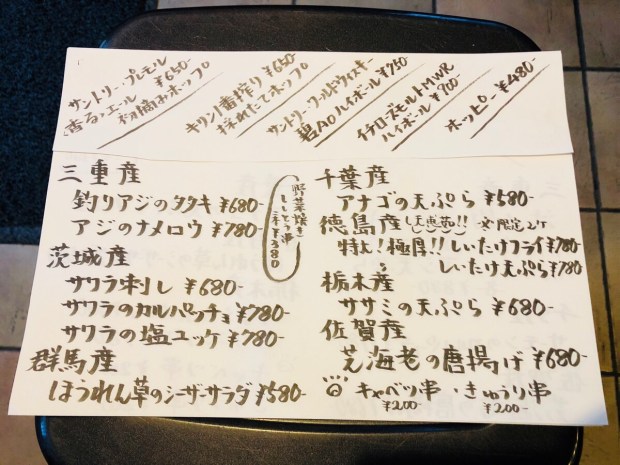 サントリープレモル
香るエール ¥650-
初摘みホップ
キリン一番搾り ¥650-
採れたてホップ
サントリーワールドウィスキー
碧AOハイボール ¥750
イチローズモルトMWR
ハイボール ¥900-
ホッピー ¥480-
三重産
釣りアジのタタキ ¥680-
アジのナメロウ ¥780-
茨城産
サワラ刺し ¥680-
サワラのカルパッチョ ¥780-
サワラの塩ユッケ ¥780-
群馬産
ほうれん草のシーザーサラダ ¥580-
野菜焼き
ししとう串
¥380
千葉産
アナゴの天ぷら ¥580-
徳島産
限定2ケ
特大!極厚!!しいたけフライ ¥780
しいたけ天ぷら ¥780
栃木産
ササミの天ぷら ¥680-
佐賀産
芝海老の唐揚げ ¥680-
キャベツ串・きゅうり串
¥200- ¥200-